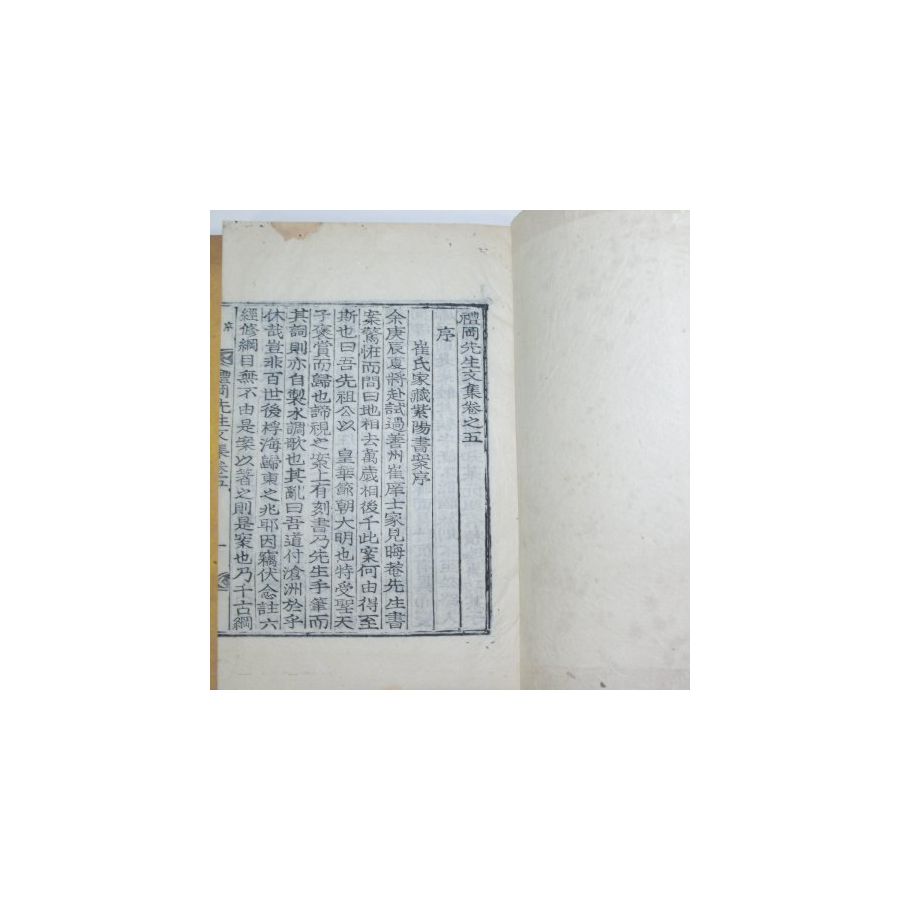 禮岡先生文集卷之五
序
崔氏家藏紫陽書案序
余庚辰夏將赴試過善州崔斯士家見晦菴先生書
案驚恠而問曰地相去萬歲相後千此案何由得至
斯也曰吾先祖公以 皇華節朝大明也特受聖天
子褒賞而歸也諦視之案上有刻書乃先生手筆而
其詞則亦自製水調歌也其亂曰吾道付滄洲於乎
休哉豈非百世後桴海歸東之兆耶因竊伏念註六
經修綱目無不由是案以著之則是案也乃千古綱
序
禮岡先生文集卷五
一